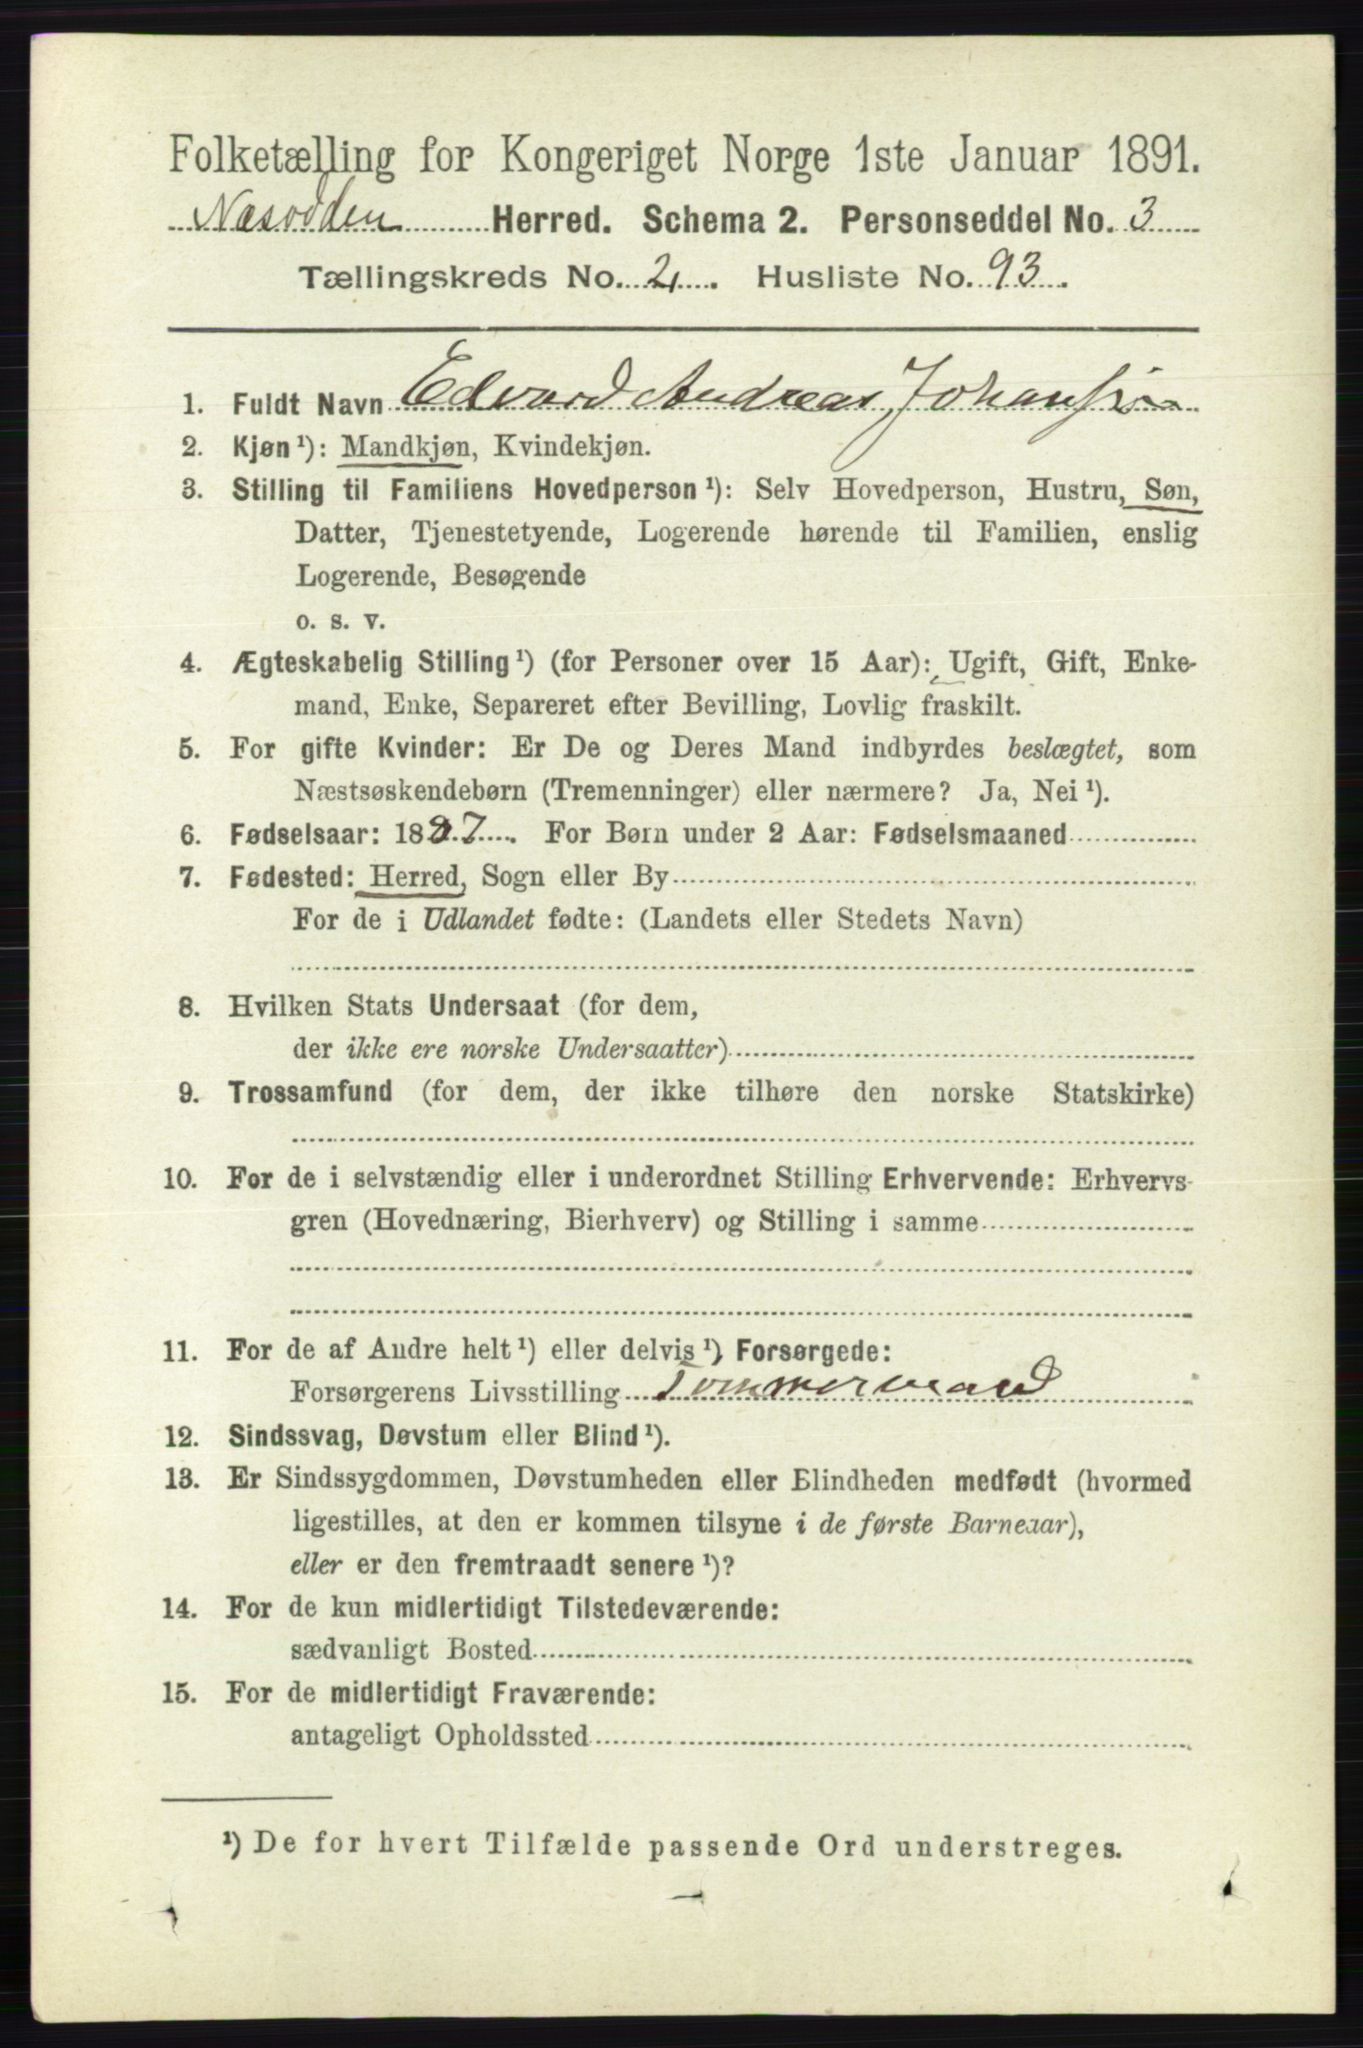 Folketælling for Kongeriget Norge 1ste Januar 1891.
Næsodden Herred. Schema 2. Personseddel No. 3
Tællingskreds No. 2. Husliste No. 93.
1. Fuldt Navn Edvard Andreas Johansen
2. Kjøn¹): Mandkjøn, Kvindekjøn.
3. Stilling til Familiens Hovedperson¹): Selv Hovedperson, Hustru, Søn,
Datter, Tjenestetyende, Logerende hørende til Familien, enslig
Logerende, Besøgende
o. s. v.
4. Ægteskabelig Stilling¹) (for Personer over 15 Aar): Ugift, Gift, Enke-
mand, Enke, Separeret efter Bevilling, Lovlig fraskilt.
5. For gifte Kvinder: Er De og Deres Mand indbyrdes beslægtet, som
Næstsøskendebørn (Tremenninger) eller nærmere? Ja, Nei¹).
6. Fødselsaar: 1887. For Børn under 2 Aar: Fødselsmaaned
7. Fødested: Herred, Sogn eller By
For de i Udlandet fødte: (Landets eller Stedets Navn)
8. Hvilken Stats Undersaat (for dem,
der ikke ere norske Undersaatter)
9. Trossamfund (for dem, der ikke tilhøre den norske Statskirke)
10. For de i selvstændig eller i underordnet Stilling Erhvervende: Erhvervs-
gren (Hovednæring, Bierhverv) og Stilling i samme
11. For de af Andre helt¹) eller delvis¹) Forsørgede:
Forsørgerens Livsstilling Tømmermand
12. Sindssvag, Døvstum eller Blind¹).
13. Er Sindssygdommen, Døvstumheden eller Blindheden medfødt (hvormed
ligestilles, at den er kommen tilsyne i de første Barneaar),
eller er den fremtraadt senere¹)?
14. For de kun midlertidigt Tilstedeværende:
sædvanligt Bosted
15. For de midlertidigt Fraværende:
antageligt Opholdssted
¹) De for hvert Tilfælde passende Ord understreges.